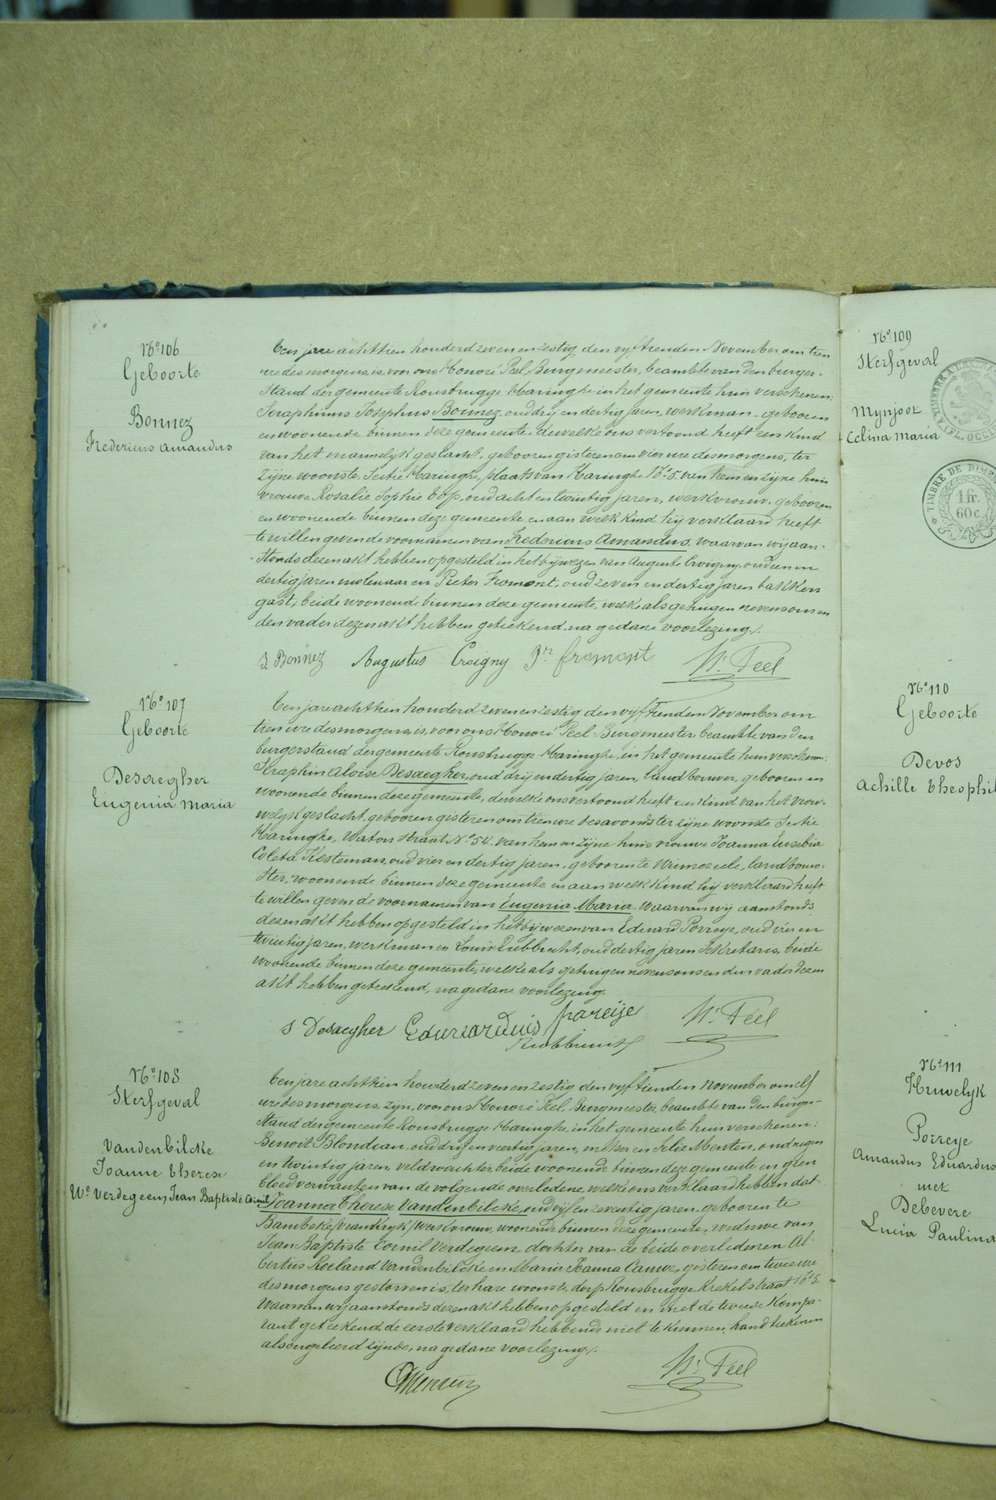 N° 106
Geboorte
Bonnez
Fredericus Amandus
Een jare achttien honderd zeven en zestig den vyftienden November om tien
ure des morgens, is voor ons Honoré Peel Burgemeester, beambte van den burger-
stand der gemeente Rousbrugge Haringhe in het gemeente huis verschenen:
Seraphinus Josephus Bonnez, oud dry en dertig jaren, werkman, geboren
en woonende binnen deze gemeente, dewelke ons vertoond heeft een kind
van het mannelyk geslacht, geboren gisteren om vier ure des morgens, ter
zyne woonste, Sectie Haringhe, plaats van Haringhe N° 5. van hem en zyne huis
vrouw Rosalie Sophie, oud acht en twintig jaren, werkvrouw, geboren
en woonende binnen deze gemeente en aan welk kind hy verklaard heeft
te willen geven de voornamen van Fredericus Amandus, waarvan wy aan-
stonds dezen akt hebben opgesteld in het bywezen van Auguste Croigny, oud een en
dertig jaren molenaar en Pieter Fromont, oud zeven en dertig jaren bakkers
gast, beide woonende binnen deze gemeente, welke als getuigen nevens ons en
den vader dezen akt hebben geteekend na gedane voorlezing.
S Bonnez Augustus Croigny Pr fromont Hr. Peel
N° 107
Geboorte
Desaegher
Eugenia Maria
Een jare achttien honderd zeven en zestig, den vyftienden November om
tien ure des morgens, is voor ons Honoré Peel Burgemeester beambte van den
burgerstand der gemeente Rousbrugge Haringhe, in het gemeente huis verschenen:
Seraphin Aloise Desaegher, oud dry en dertig jaren, landbouwer, geboren en
woonende binnen deze gemeente, dewelke ons vertoond heeft een kind van het vrou-
welyk geslacht, geboren gisteren om tien ure des avonds ter zyne woonste Sectie
Haringhe, Watou straat N° 54. van hem en zyne huisvrouwe Joanna Eusebia
Coleta Kesteman, oud vier en dertig jaren, geboren te, landbouw-
ster, woonende binnen deze gemeente en aan welk kind hy verklaard heeft
te willen geven de voornamen van Eugenia Maria, waarvan wy aanstonds
dezen akt hebben opgesteld in het bywezen van Eduard Porreye, oud vier en
twintig jaren, werkman en Louis Rubbrecht, oud dertig jaren Sekretaris, beide
woonende binnen deze gemeente, welke als getuigen nevens ons en den vader dezen
akt hebben geteekend, na gedane voorlezing.
S Desaegher Eduardus Porreije Hr. Peel
N° 108
Sterfgeval
Vandenbilcke
Joanne Therese
We Verdegeem, Jean Baptiste Cornil
Een jare achttien honderd zeven en zestig den vyftienden November om elf
ure des morgens, zyn, voor ons Honoré Peel, Burgemeester, beambte van den burger-
stand der gemeente Rousbrugge Haringhe, in het gemeente huis verschenen:
Benoit Blondeau, oud dry en veertig jaren, metser en Felix Merten, oud negen
en twintig jaren, veldwachter beide woonende binnen deze gemeente en geen
bloedverwanten van de volgende overledene, welke ons verklaard hebben dat
Joanna Therese Vandenbilcke, oud vyf en zeventig jaren, geboren te
Bambeke (Frankryk) werkvrouw, woonende binnen deze gemeente, weduwe van
Jean Baptiste Cornil Verdegeem dochter van de beide overledenen Al-
bertus Roeland Vandenbilcke en Maria Joanna Cauwe, gisteren om twee ure
des morgens gestorven is, ter hare woonste, dorp Rousbrugge Krekelstraat N° 5
Waarvan wy aanstonds dezen akt hebben opgesteld en met de tweede Kompa-
rant geteekend de eerste verklaard hebbende niet te kunnen handteekenen
als ongeleerd zynde, na gedane voorlezing.
Hr. Peel
N° 109
Sterfgeval
Mynjoot
Celina Maria
TIMBRE DE DIM
1 fr.
60 c.
N° 110
Geboorte
Devos
Achille Theophil
N° 111
Huwelyk
Porreye
Amandus Eduardus
met
Debevere
Lucia Paulina